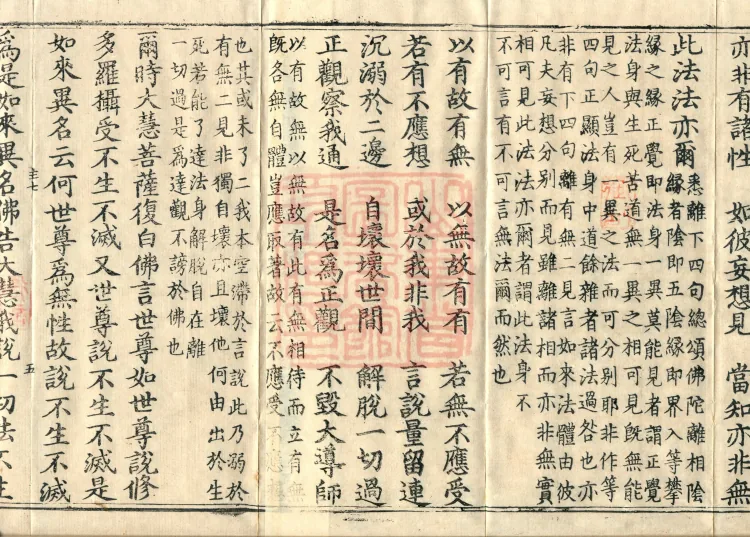 亦非有諸性 如彼妄想見 當知亦非無
此法法亦爾
悉離下四句總頌佛陀離相陰
緣者陰即五陰緣即界入等攀
緣之緣正覺即法身一異莫能見者謂正覺
法身與生死苦道無一異之相可見既無能
見之人豈有一異之法而可分別耶非作等
四句正顯法身中道餘雜者諸法過咎也亦
非有下四句離有無二見言如來法體由彼
凡夫妄想分別而見雖離諸相而亦非無實
相可見此法法亦爾者謂此法身不
不可言有不可言無法爾而然也
以有故有無 以無故有有 若無不應受
若有不應想 或於我非我 言說量留連
沉溺於二邊 自壞壞世間 解脫一切過
正觀察我通 是名爲正觀 不毀大導師
以有故無以無故有此有無相待而立有無
既各無自體豈應取著故云不應受不應想
也其或未了二我本空滯於言說此乃溺於
有無二見非獨自壞亦且壞他何由出於生
死若能了達法身解脫自在離
一切過是爲達觀不謗於佛也
爾時大慧菩薩復白佛言世尊如世尊說修
多羅攝受不生不滅又世尊說不生不滅是
如來異名云何世尊爲無性故說不生不滅
主七 五
爲是如來異名佛告大慧我說一切法不生